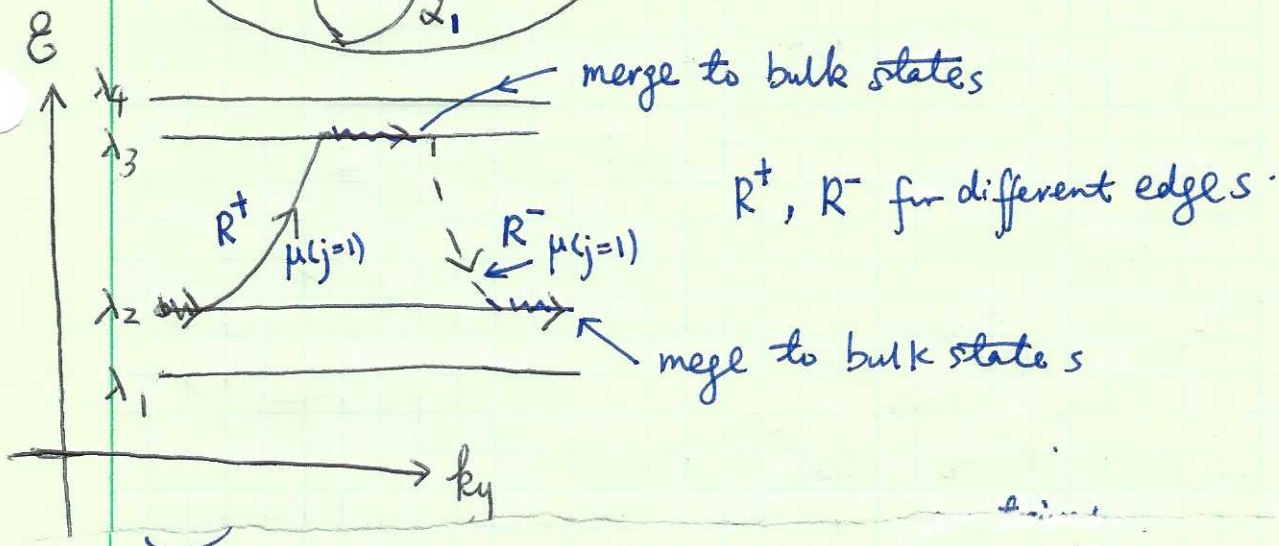 α₁
ε
λ₄
merge to bulk states
λ₃
R⁺, R⁻ for different edges.
R⁺
μ(j=1)
R⁻
μ(j=1)
λ₂
mege to bulk states
λ₁
ky